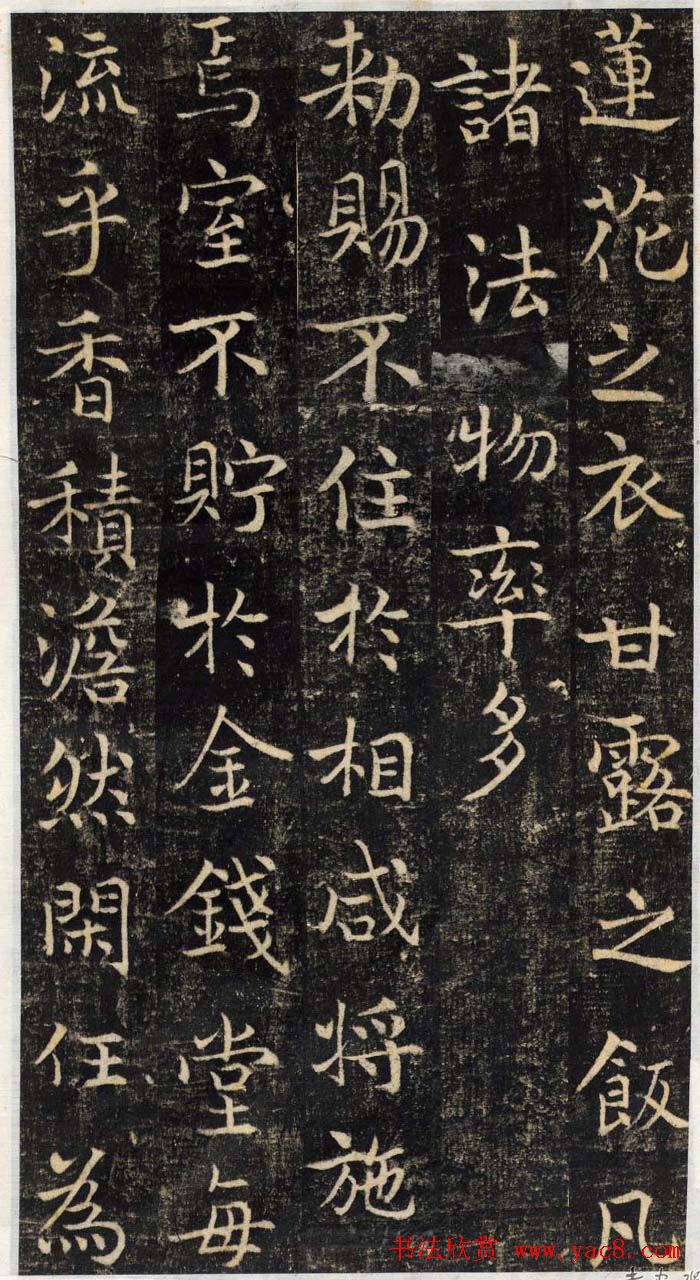 蓮花之衣甘露之飯凡
諸法物率多
勑賜不住於相咸將施
焉室不貯於金錢堂每
流乎香積澹然閑任為
书法欣赏 www.yac8.com